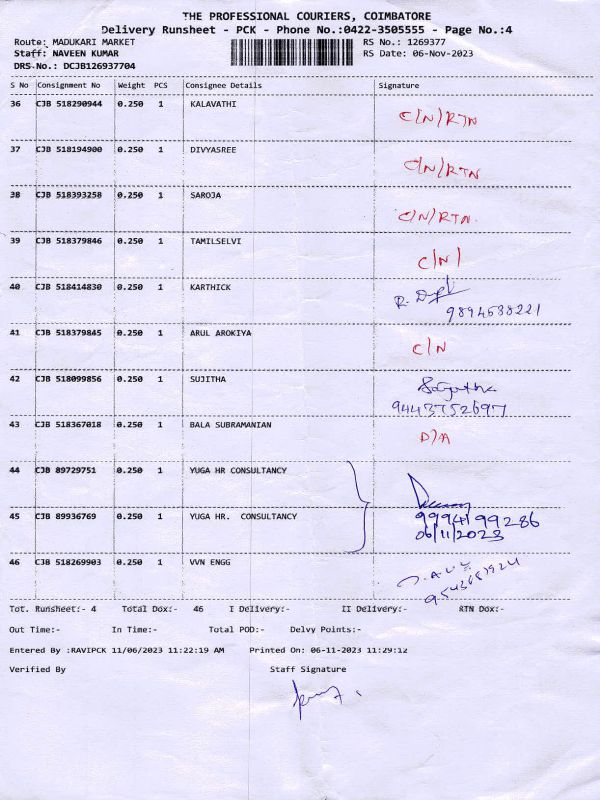 THE PROFESSIONAL COURIERS, COIMBATORE
Delivery Runsheet - PCK - Phone No.:0422-3505555 - Page No.:4
Route: MADUKARI MARKET RS No.: 1269377
Staff: NAVEEN KUMAR RS Date: 06-Nov-2023
DRS-No.: DCJB126937704
S No Consignment No Weight PCS Consignee Details Signature
36 CJB 518290944 0.250 1 KALAVATHI C/N/RTN
37 CJB 518194900 0.250 1 DIVYASREE C/N/RTN
38 CJB 518393258 0.250 1 SAROJA C/N/RTN.
39 CJB 518379846 0.250 1 TAMILSELVI C/N/
40 CJB 518414830 0.250 1 KARTHICK R.
9894638221
41 CJB 518379845 0.250 1 ARUL AROKIYA C/N
42 CJB 518099856 0.250 1 SUJITHA
9443752697
43 CJB 518367018 0.250 1 BALA SUBRAMANIAN D/A
44 CJB 89729751 0.250 1 YUGA HR CONSULTANCY
45 CJB 89936769 0.250 1 YUGA HR. CONSULTANCY 9994199286
06/11/2023
46 CJB 518269903 0.250 1 VVN ENGG
Tot. Runsheet:- 4 Total Dox:- 46 I Delivery:- II Delivery:- RTN Dox:-
Out Time:- In Time:- Total POD:- Delvy Points:-
Entered By :RAVIPCK 11/06/2023 11:22:19 AM Printed On: 06-11-2023 11:29:12
Verified By Staff Signature